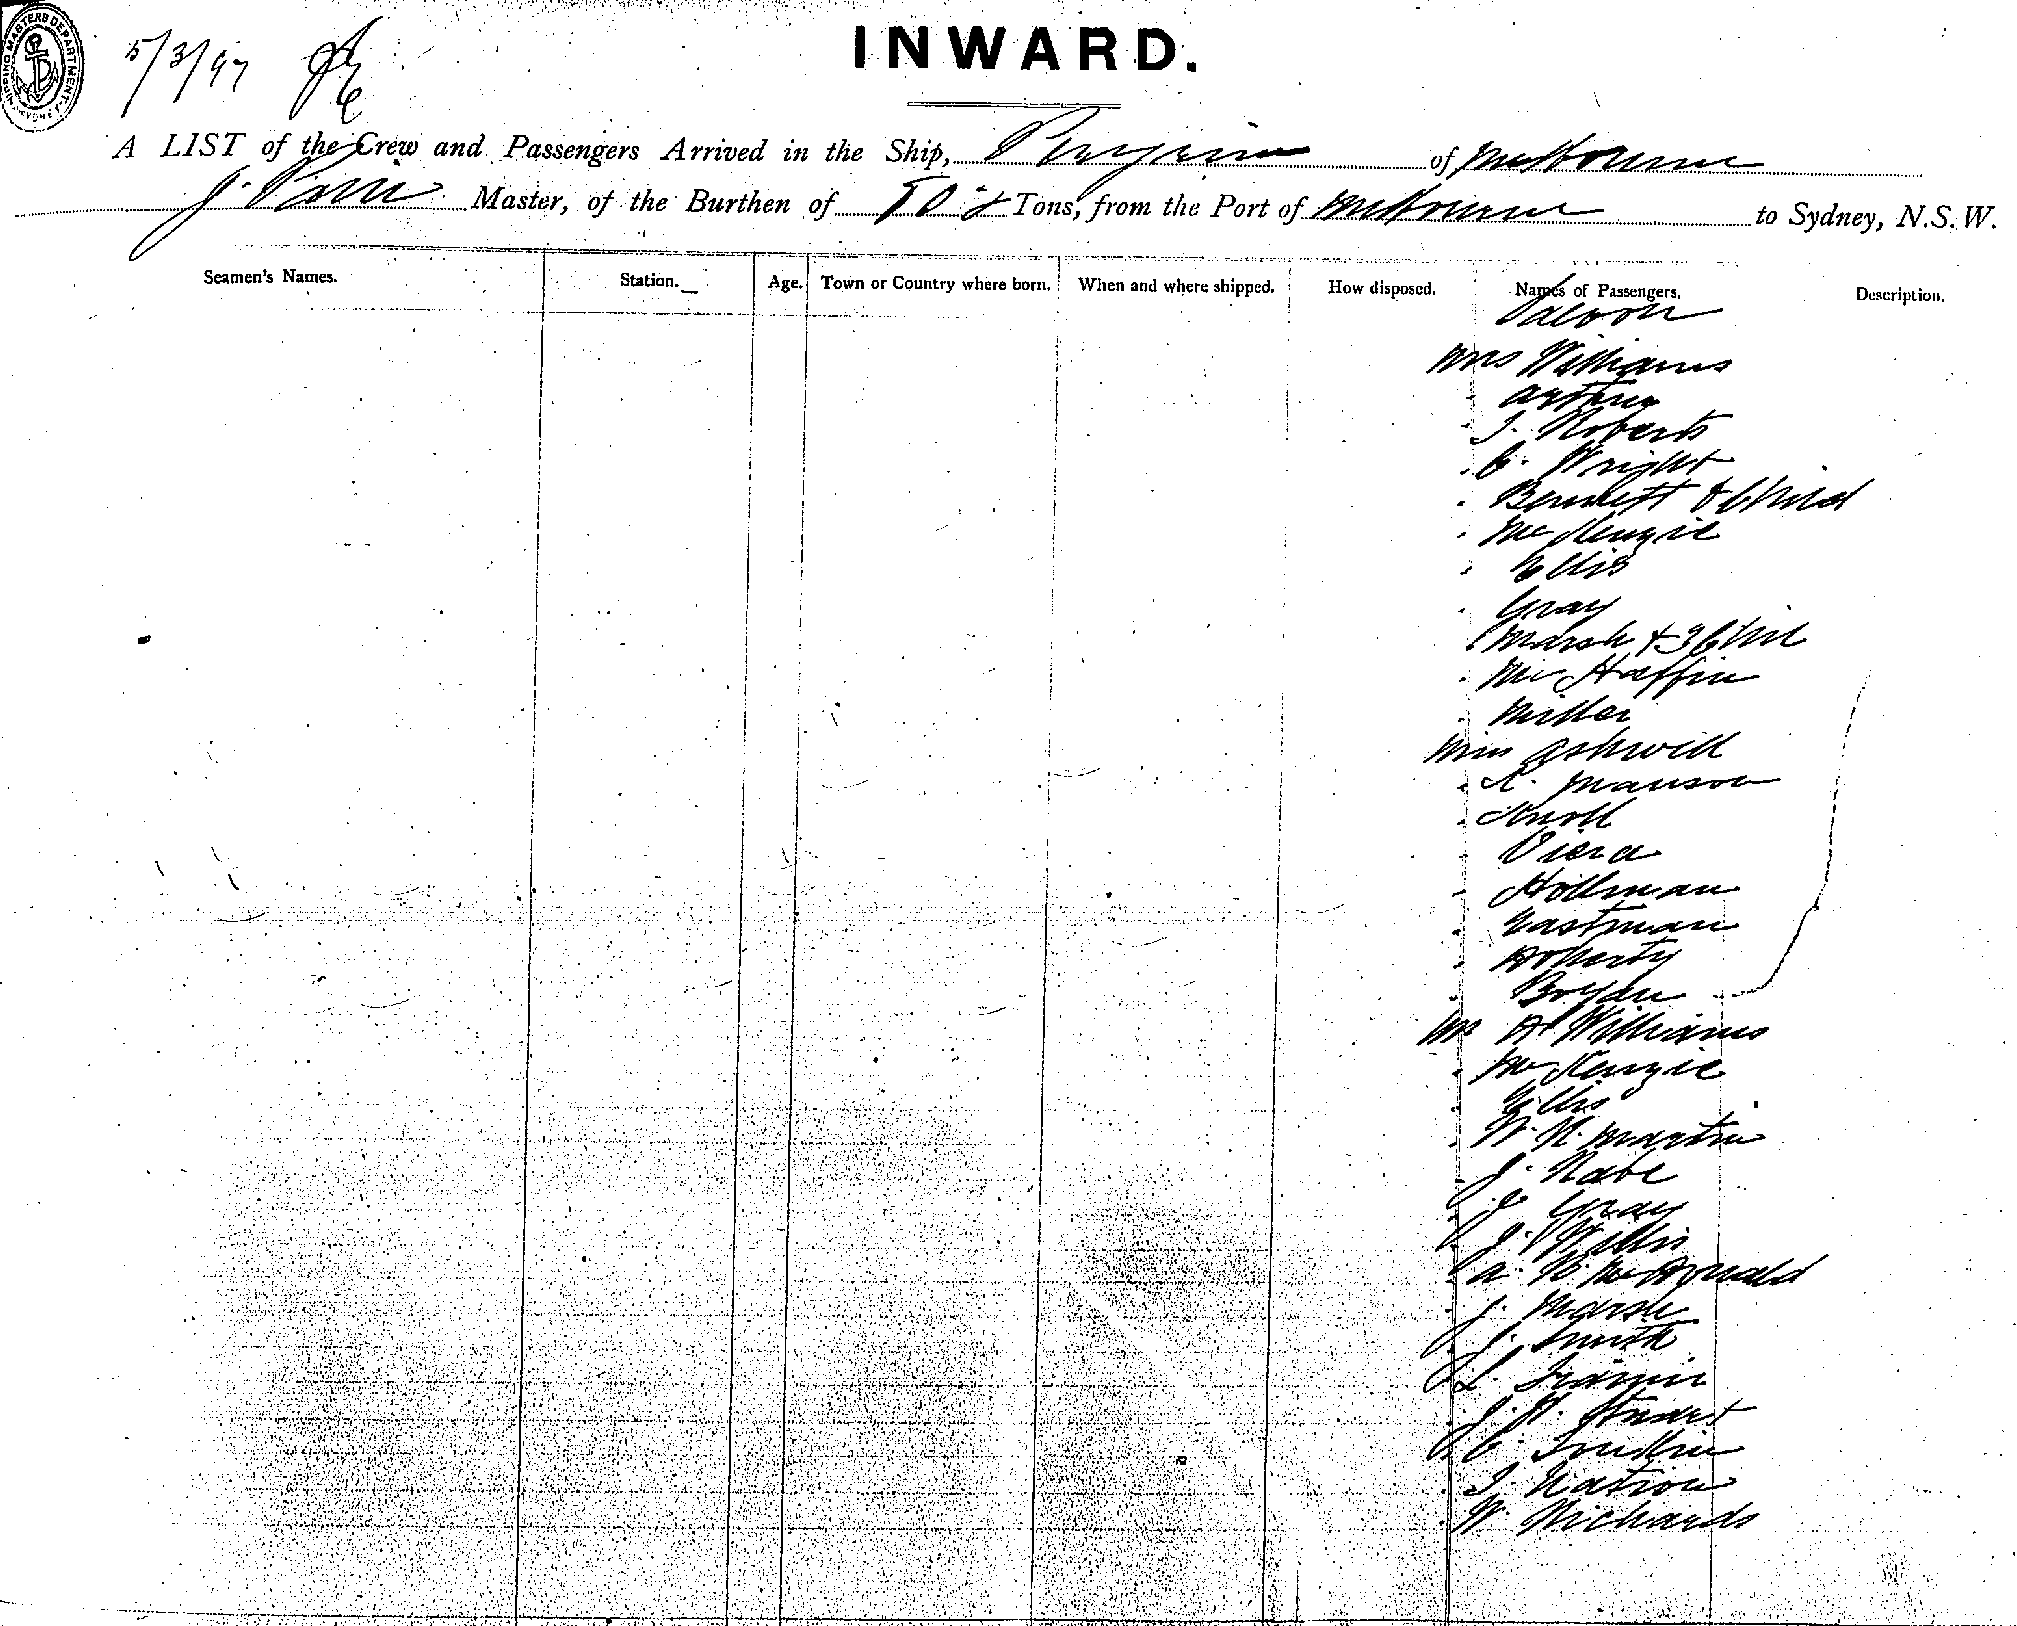 SHIPPING MASTERS DEPARTMENT SYDNEY
5/3/97
INWARD.
A LIST of the Crew and Passengers Arrived in the Ship, Peregrine of Melbourne
Master, of the Burthen of Tons, from the Port of Melbourne to Sydney, N.S.W.
Seamen's Names. Station. Age. Town or Country where born. When and where shipped. How disposed. Names of Passengers. Description.
Saloon
Mrs Williams
J. Roberts
" C. Wright
" Bennett & Child
" McKenzie
" Ellis
" Gray
" Marsh & 3 Chil
" Mc Haffin
" Miller
Miss Ashwell
" Manson
" Knoll
" Viera
" Hollman
" Eastman
" Doherty
" Boyden
Mr A Williams
" McKenzie
" Ellis
" W. H. Martin
" J. Rabe
" J. Gray
" J. Willis
" A. R. McDonald
" J. Marsh
" J. Smith
" L. Francis
" J. W. Stuart
" C. Tomlin
" J. Nation
" W. Richards